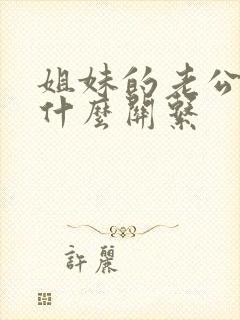 姐妹的老公
什麼關繫
許麗